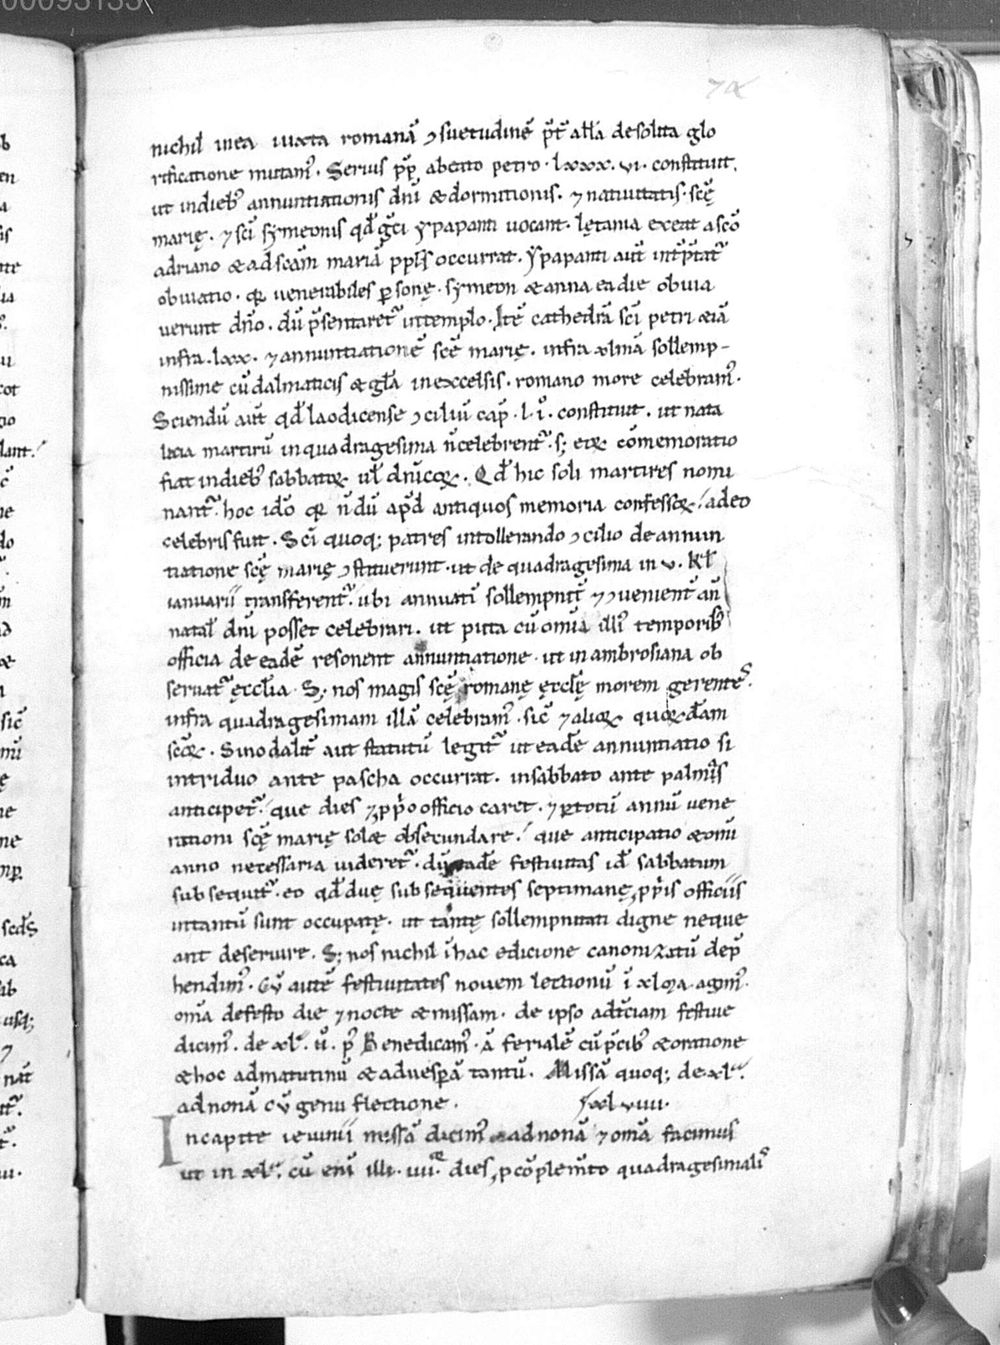 00093133
74
nichil in ea iuxta romanā ɔsuetudinē p̄t̄ alła desolita glo
rificatione mutam᾽. Serius p̄p̄ abeato petro. lxxx. vi. constituit.
ut indieb; annuntiationis dnī & dormitionis. ⁊ nativitatis. scę̄
marię. ⁊ scī symeonis qđ gčī ypapanti vocant. lętania exeat a scō
adriano & ad scām mariā pp̄ls occurrat. Ypapanti aūt int̄p̄tat᾽
obviatio. qꝛ venerabiles ꝑsonę. symeon & anna ea die obvia
verunt dnō. dū p̄sentaret᾽ intemplo. Itē cathedrā scī petri &iā
infra. lxx. ⁊ annuntiationē scē̄ marię. infra xlmā sollemp-
nissime cū dalmaticis & glā inexcelsis. romano more celebram᾽.
Sciendū aūt qđ laodicense ɔciliū cap̄. l. i. constituit. ut nata
licia martirū in quadragesima n̄ celebrent᾽. s; eoꝝ cōmemoratio
fiat indieb; sabbatoꝝ ul̄ dnīcoꝝ. Qđ hic soli martires nomi
nant᾽. hoc idō qꝛ n̄dū apđ antiquos memoria confessoꝝ adeo
celebris fuit. Scī quoq; patres intolletando ɔcilio de annun
tiatione scę̄ marię ɔstituerunt. ut de quadragesima in v. kł
ianuarii transferent᾽. ubi annuati sollempnit̄ ⁊ ɔvenient̄ an̄
natal̄ dnī posset celebrari. ut puta cū omīa illi᾽ temporis
officia de eadē resonent annuntiatione. ut in ambrosiana ob
servat᾽ ęccłia. S; nos magis scę̄ romanę ęccłę morem gerentes.
infra quadragesimam illā celebram᾽. sic̄ ⁊ alioꝝ quorđam
scōꝝ. Sinodalit̄ aūt statutū legit᾽ ut eadē annuntiatio si
intriduo ante pascha occurrat. insabbato ante palmas
anticipet᾽. que dies ⁊ pp̄o officio caret. ⁊ ꝑtotū annū vene
rationi scę̄ marię sol& obsecundare. que anticipatio &omī
anno necessaria videret᾽. dū eadē festivitas id̄ sabbatum
subsequit᾽. eo qđ duę subsequentes septimanę, pp̄is officiis
intantū sunt occupatę. ut tantę sollempnitati digne neque
ant deservire. S; nos nichil ī hac edicione canonizatū dep̄
hendim᾽. Cū autē festivitates novem lectionū ī xlma agim᾽.
omīa defesto die ⁊ nocte & missam. de ipso adiciam festive
dicim᾽. de xl. ū. p̄ Benedicam᾽. ā ferialē cū p̄cib; & oratione
& hoc admatutinū & advesꝑā tantū. Missā quoq; de xl.
ad nonā cū genu flectione. xlviiii.
Incapite ieiunii missā dicim᾽ & ad nonā ⁊ omīa facimus
ut in xl. cū enī illi. iiii. dies, ꝓ cōplemto quadragesimali᾽